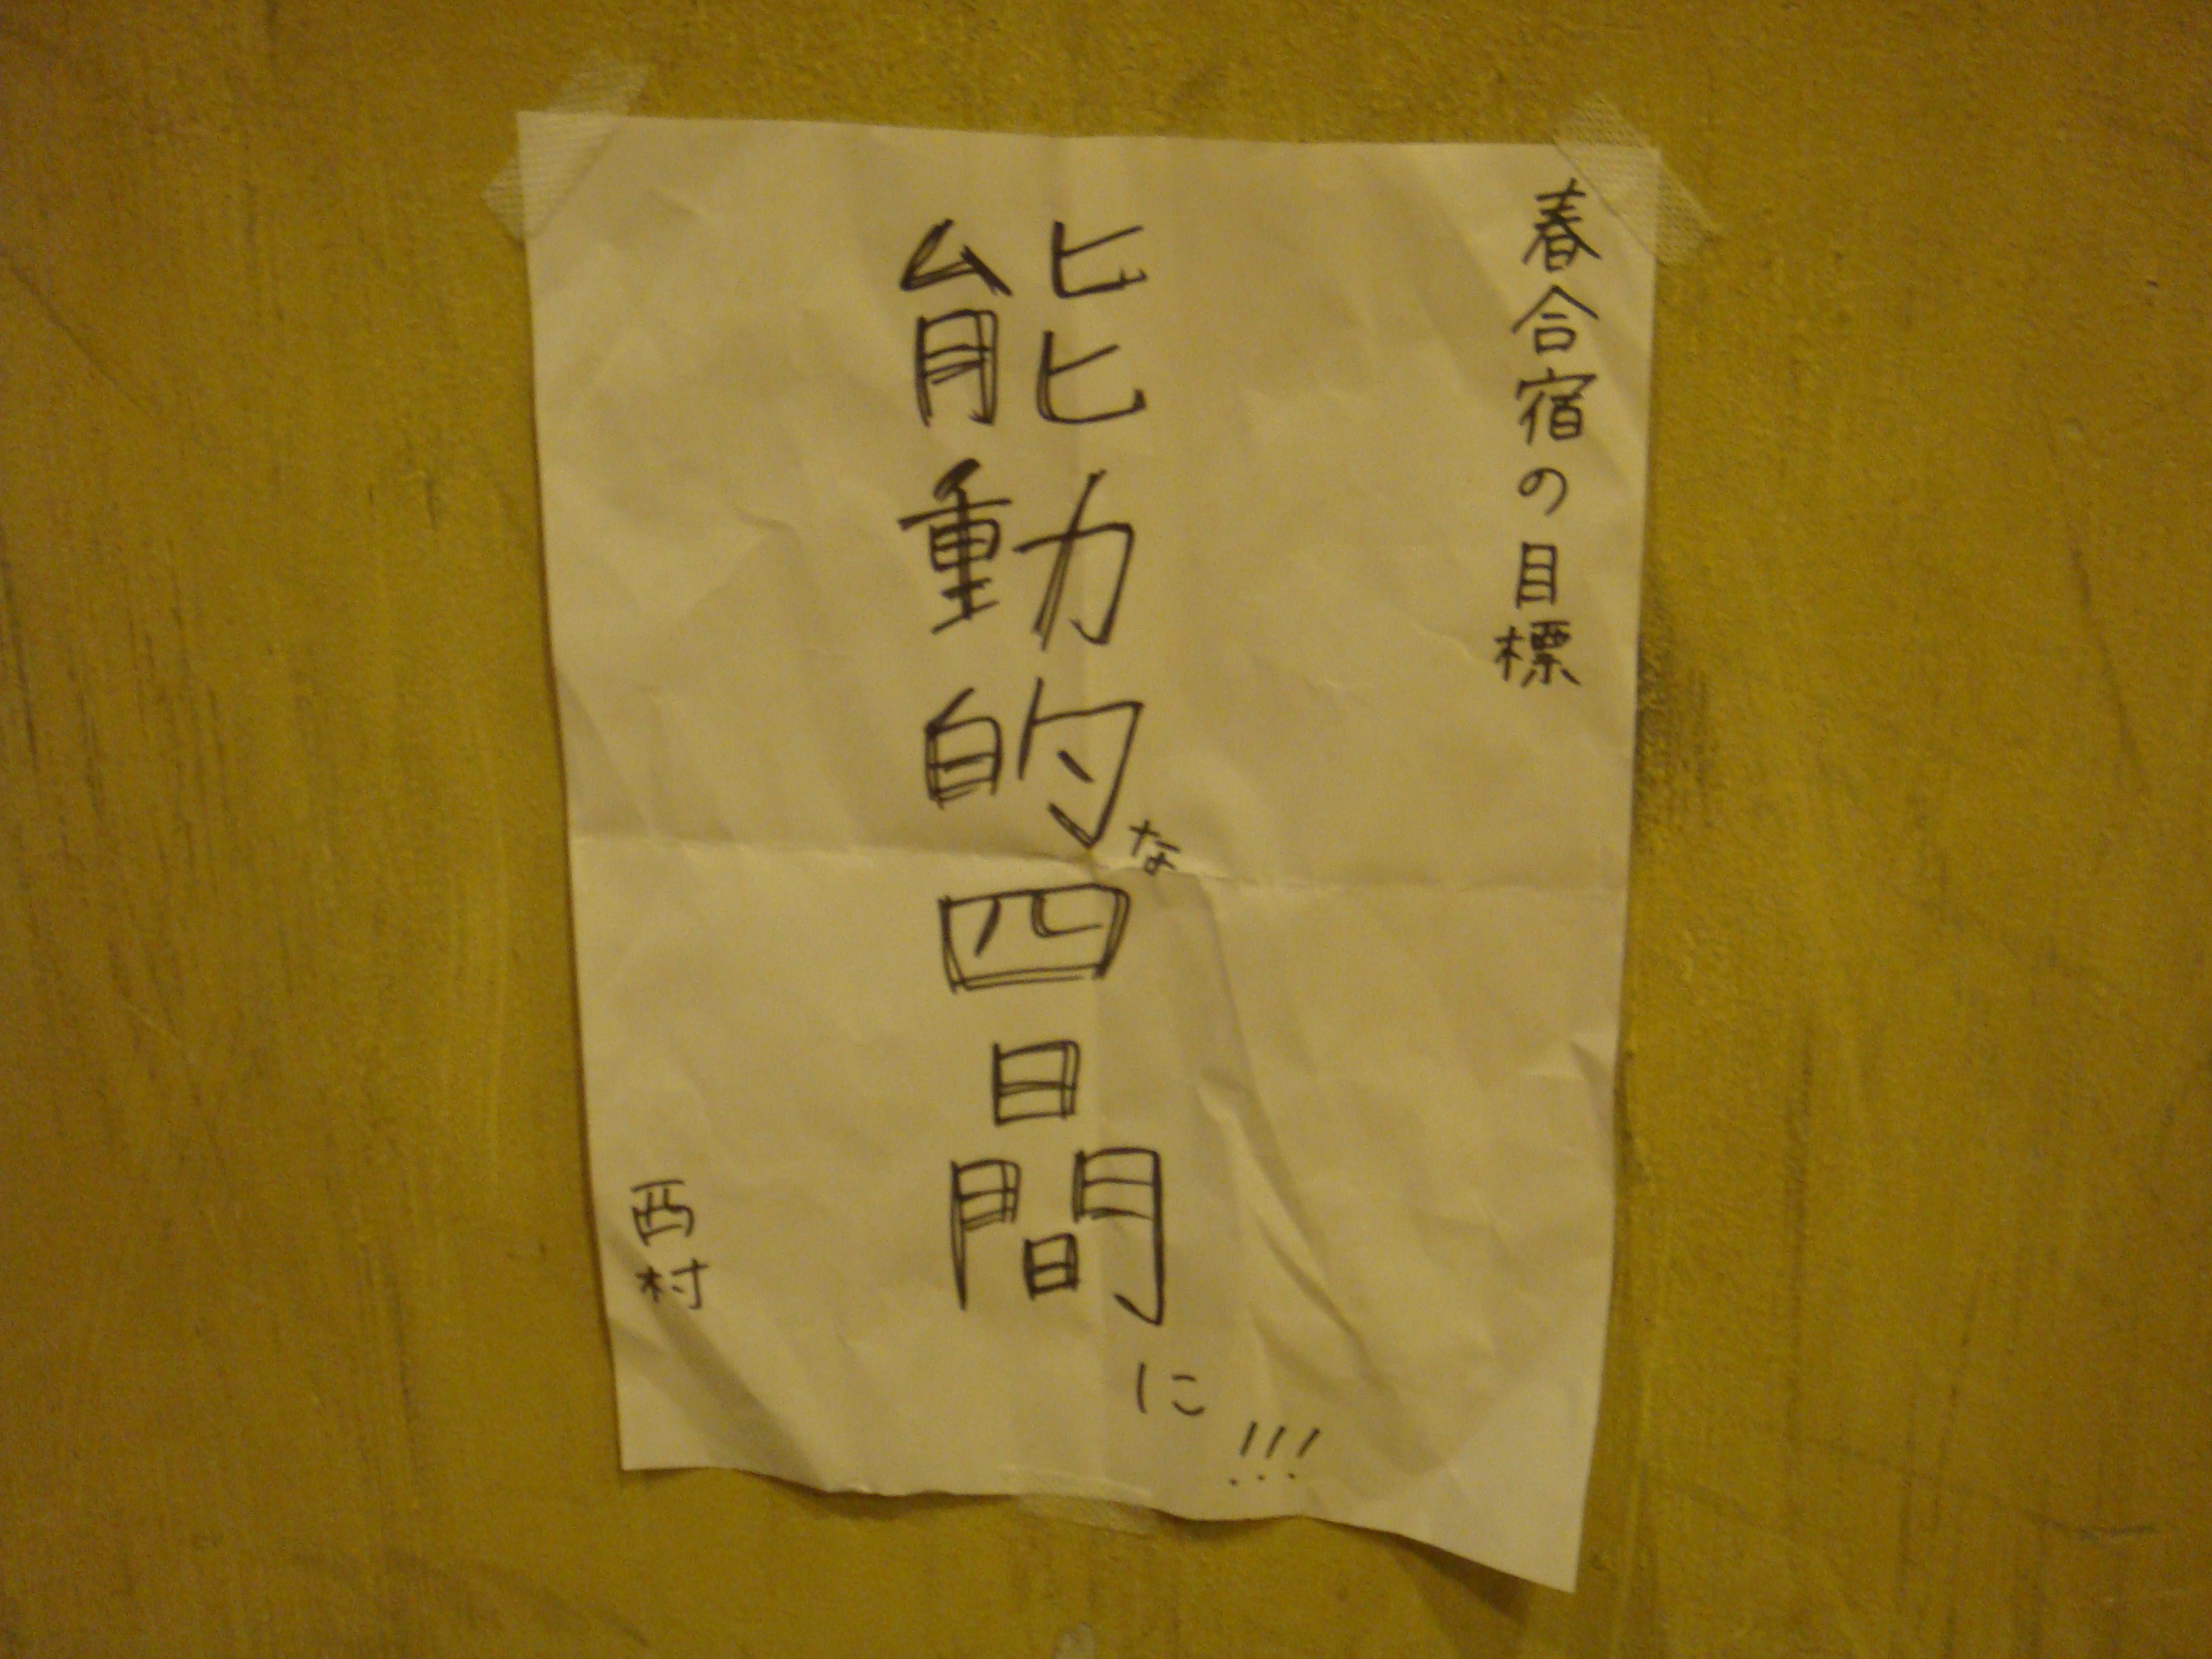 春合宿の目標
能動的な四日間に!!!
西村